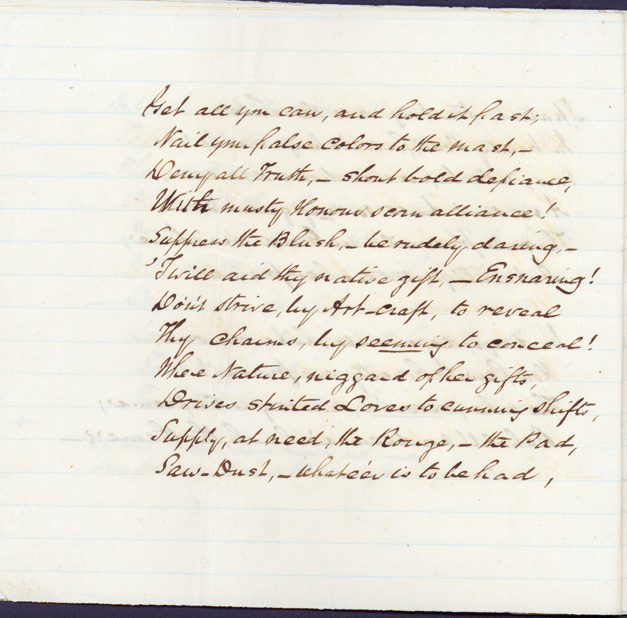 Get all you can, and hold it fast;
Nail your false colors to the mast,—
Deny all Truth,— shout bold defiance,
With musty Honour scorn alliance!
Suppress the Blush,— be rudely daring,—
'Twill aid thy native gift,— Ensnaring!
Don't strive, by Art-craft, to reveal
Thy charms, by seeming to conceal!
Where Nature, niggard of her gifts,
Drives stinted Loves to cunning shifts,
Supply, at need, the Rouge,— the Pad,
Saw-Dust,— whate'er is to be had,